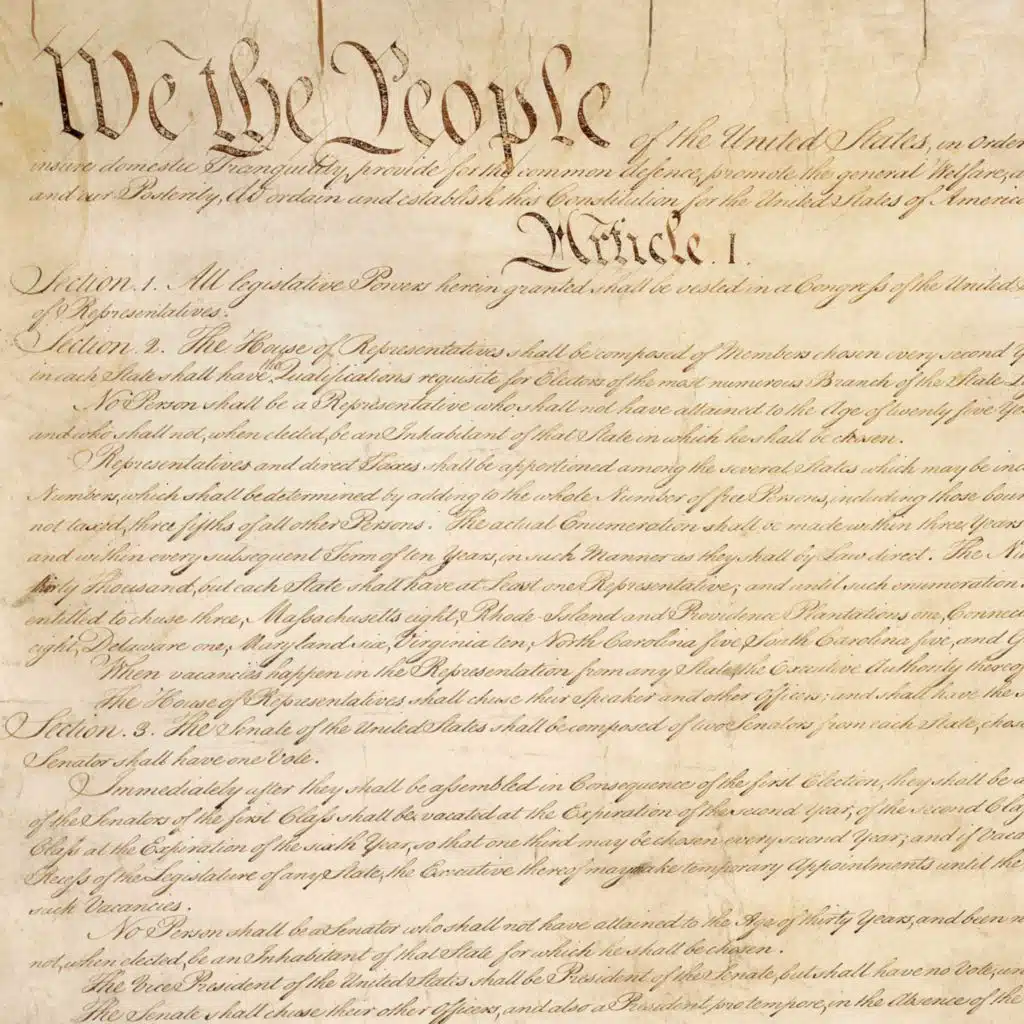 We the People of the United States, in Order
insure domestic Tranquility, provide for the common defence, promote the general Welfare, a
and our Posterity, do ordain and establish this Constitution for the United States of America
Article. I.
Section. 1. All legislative Powers herein granted shall be vested in a Congress of the United
of Representatives.
Section. 2. The House of Representatives shall be composed of Members chosen every second Y
in each State shall have the Qualifications requisite for Electors of the most numerous Branch of the State L
No Person shall be a Representative who shall not have attained to the Age of twenty five Ye
and who shall not, when elected, be an Inhabitant of that State in which he shall be chosen.
Representatives and direct Taxes shall be apportioned among the several States which may be inc
Numbers, which shall be determined by adding to the whole Number of free Persons, including those boun
not taxed, three fifths of all other Persons. The actual Enumeration shall be made within three Years
and within every subsequent Term of ten Years, in such Manner as they shall by Law direct. The Nu
thirty Thousand, but each State shall have at Least one Representative; and until such enumeration
entitled to chuse three, Massachusetts eight, Rhode-Island and Providence Plantations one, Connec
eight, Delaware one, Maryland six, Virginia ten, North Carolina five, South Carolina five, and G
When vacancies happen in the Representation from any State, the Executive Authority thereof
The House of Representatives shall chuse their Speaker and other Officers; and shall have the s
Section. 3. The Senate of the United States shall be composed of two Senators from each State, chose
Senator shall have one Vote.
Immediately after they shall be assembled in Consequence of the first Election, they shall be d
of the Senators of the first Class shall be vacated at the Expiration of the second Year, of the second Cla
Class at the Expiration of the sixth Year, so that one third may be chosen every second Year; and if Vaca
Recess of the Legislature of any State, the Executive thereof may make temporary Appointments until the
such Vacancies.
No Person shall be a Senator who shall not have attained to the Age of thirty Years, and been n
not, when elected, be an Inhabitant of that State for which he shall be chosen.
The Vice President of the United States shall be President of the Senate, but shall have no Vote, un
The Senate shall chuse their other Officers, and also a President pro tempore, in the Absence of the